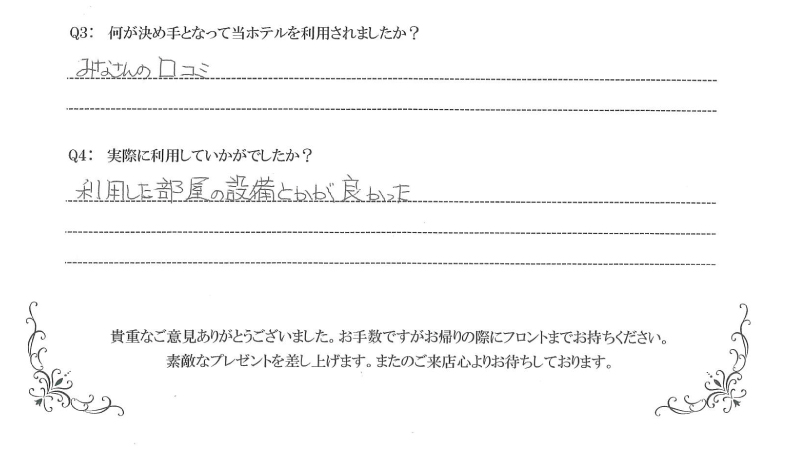 Q3: 何が決め手となって当ホテルを利用されましたか?
みなさんの口コミ
Q4: 実際に利用していかがでしたか?
利用した部屋の設備とかが良かった
貴重なご意見ありがとうございました。お手数ですがお帰りの際にフロントまでお持ちください。
素敵なプレゼントを差し上げます。またのご来店心よりお待ちしております。